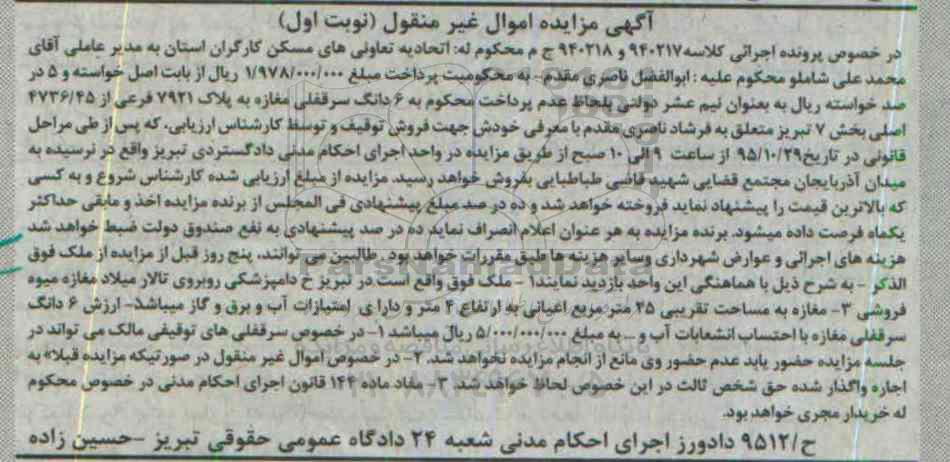 آگهی مزایده اموال غیر منقول (نوبت اول)
در خصوص پرونده اجرائی کلاسه ۹۴۰۲۱۷ و ۹۴۰۲۱۸ ج م محکوم له: اتحادیه تعاونی های مسکن کارگران استان به مدیر عاملی آقای
محمد علی شاملو محکوم علیه : ابوالفضل ناصری مقدم - به محکومیت پرداخت مبلغ ۱/۹۷۸/۰۰۰/۰۰۰ ریال از بابت اصل خواسته و ۵ در
صد خواسته ریال به بعنوان نیم عشر دولتی بلحاظ عدم پرداخت محکوم به ۶ دانگ سرقفلی مغازه به پلاک ۷۹۲۱ فرعی از ۴۷۳۶/۴۵
اصلی بخش ۷ تبریز متعلق به فرشاد ناصری مقدم با معرفی خودش جهت فروش توقیف و توسط کارشناس ارزیابی، که پس از طی مراحل
قانونی در تاریخ ۹۵/۱۰/۲۹ از ساعت ۹ الی ۱۰ صبح از طریق مزایده در واحد اجرای احکام مدنی دادگستردی تبریز واقع در نرسیده به
میدان آذربایجان مجتمع قضایی شهید قاضی طباطبایی بفروش خواهد رسید. مزایده از مبلغ ارزیابی شده کارشناس شروع و به کسی
که بالاترین قیمت را پیشنهاد نماید فروخته خواهد شد و ده در صد مبلغ پیشنهادی فی المجلس از برنده مزایده اخذ و مابقی حداکثر
یکماه فرصت داده میشود. برنده مزایده به هر عنوان اعلام انصراف نماید ده در صد پیشنهادی به نفع صندوق دولت ضبط خواهد شد
هزینه های اجرائی و عوارض شهرداری وسایر هزینه ها طبق مقررات خواهد بود. طالبین می توانند، پنج روز قبل از مزایده از ملک فوق
الذکر - به شرح ذیل با هماهنگی این واحد بازدید نمایند ۱- ملک فوق واقع است در تبریز خ دامپزشکی روبروی تالار میلاد مغازه میوه
فروشی ۳- مغازه به مساحت تقریبی ۴۵ متر مربع اعیانی به ارتفاع ۴ متر و دارا ی امتیازات آب و برق و گاز میباشد- ارزش ۶ دانگ
سرقفلی مغازه با احتساب انشعابات آب و ... به مبلغ ۵/۰۰۰/۰۰۰/۰۰۰ ریال میباشد ۱- در خصوص سرقفلی های توقیفی مالک می تواند در
جلسه مزایده حضور یابد عدم حضور وی مانع از انجام مزایده نخواهد شد. ۲- در خصوص اموال غیر منقول در صورتیکه مزایده قبلا» به
اجاره واگذار شده حق شخص ثالث در این خصوص لحاظ خواهد شد. ۳- مفاد ماده ۱۴۴ قانون اجرای احکام مدنی در خصوص محکوم
له خریدار مجری خواهد بود.
ح/۹۵۱۲ دادورز اجرای احکام مدنی شعبه ۲۴ دادگاه عمومی حقوقی تبریز -حسین زاده
ParsNamadData